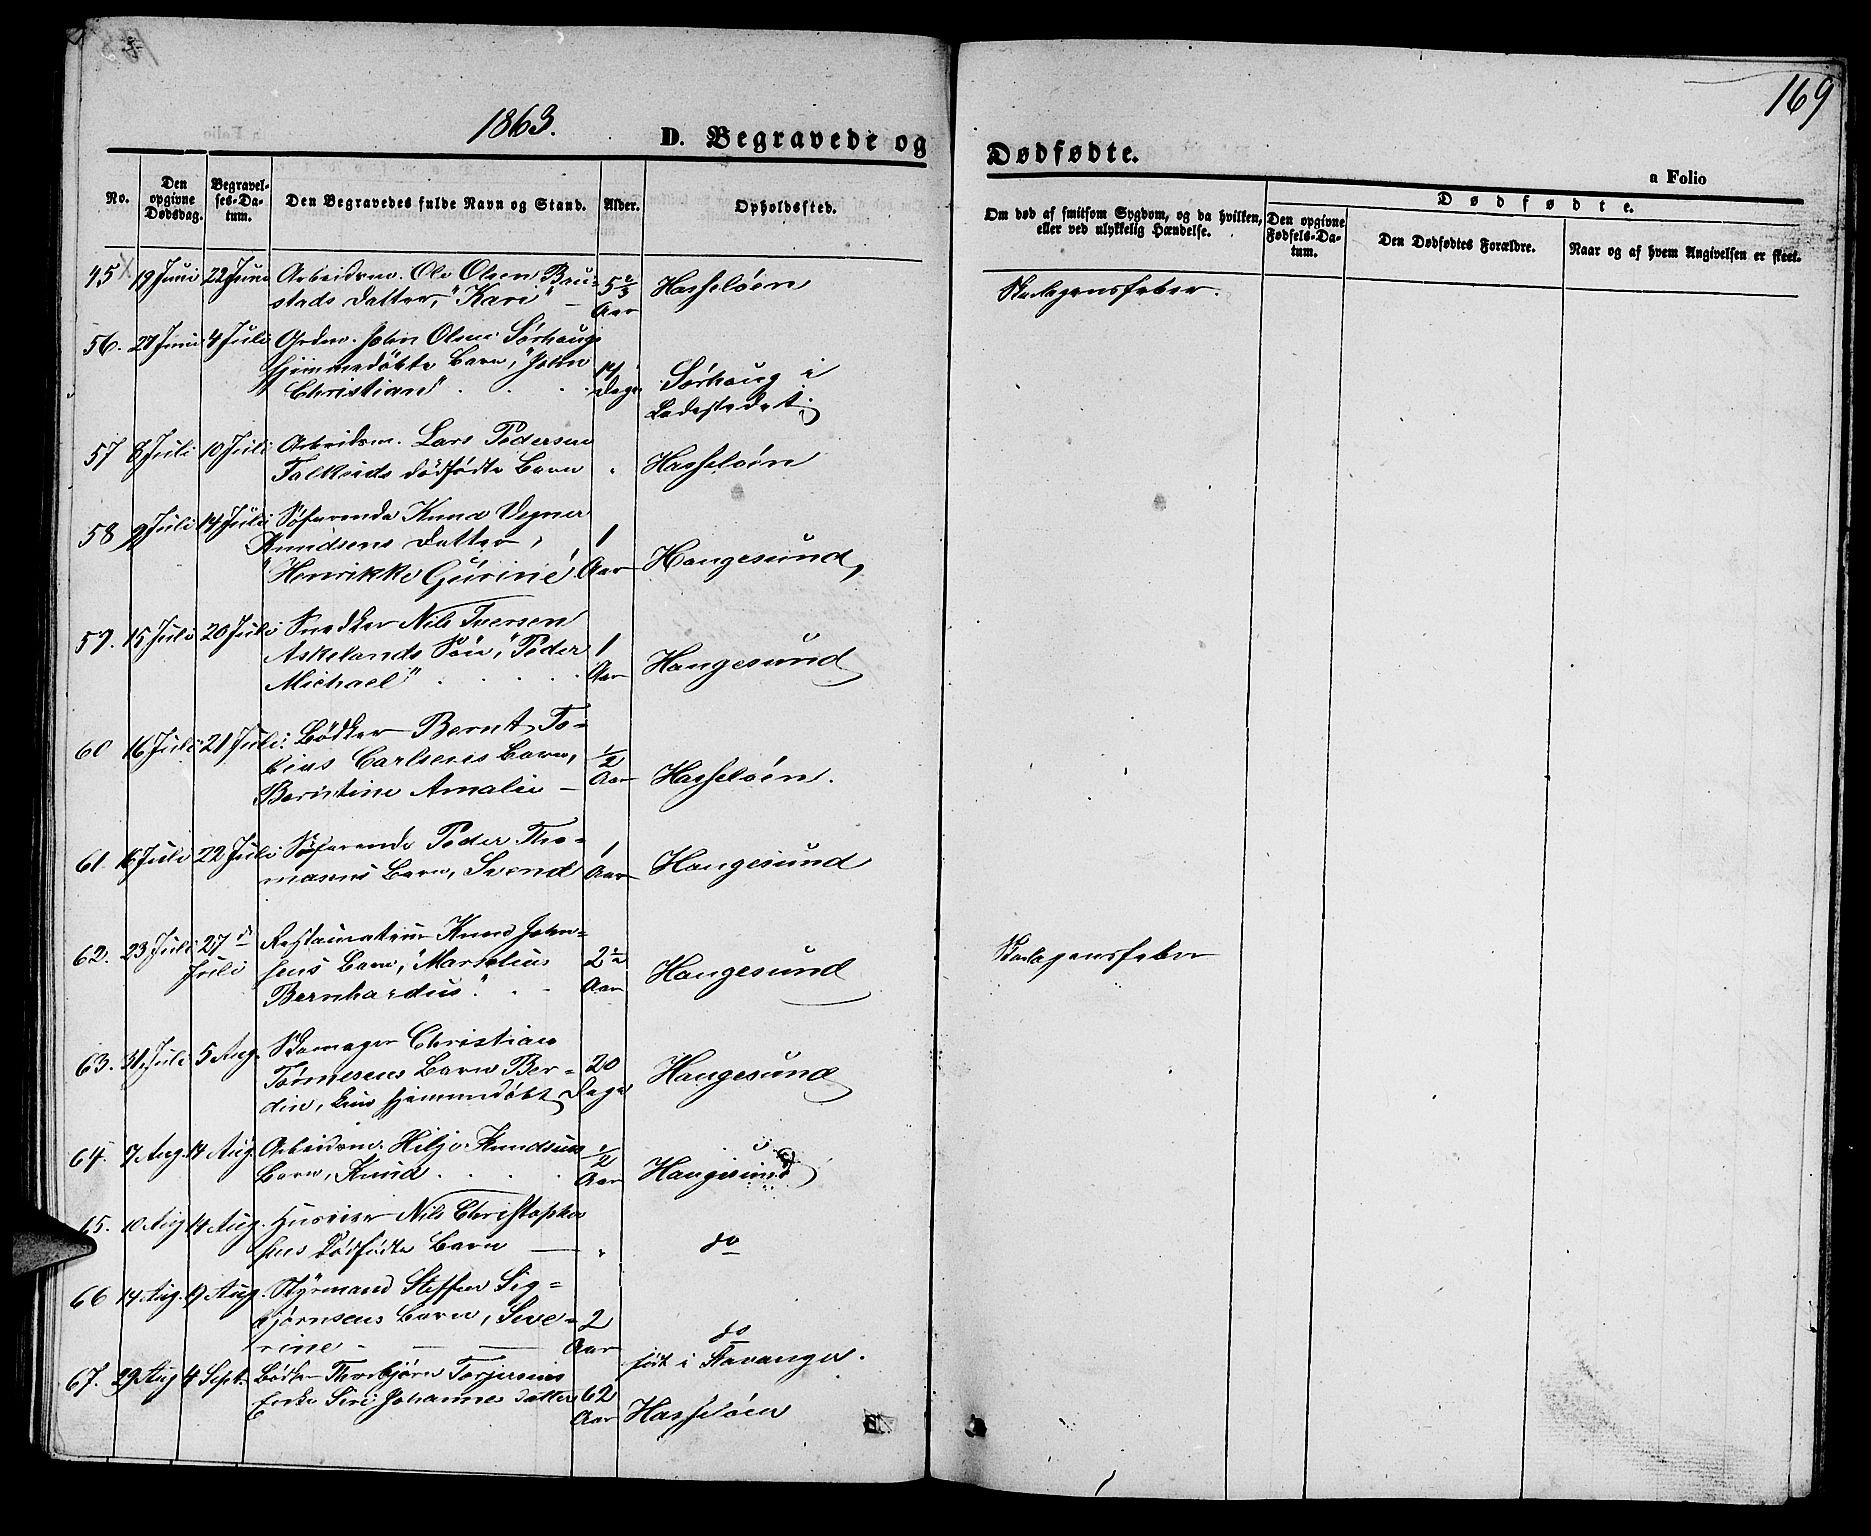 169
1863.
D. Begravede og Dødfødte.
a Folio
No.
Den opgivne Dødsdag.
Begravel-
ses-Da-
tum.
Den Begravedes fulde Navn og Stand.
Alder.
Opholdssted.
Om død af smitsom Sygdom, og da hvilken,
eller ved ulykkelig Hændelse.
Dødfødte.
Den opgivne
Fødsels-Da-
tum.
Den Dødfødtes Forældre.
Naar og af hvem Angivelsen er skeet.
19 Juni 22 Juni Arbeidsm. Ole Olsen Bau-
stads Datter, "Kari" — 5 2/3 Aar Hasseløen Skarlagensfeber.
56. 27 Juni 4 Juli John Olsens Sørhaugs
hjemmedöbte Barn, "John
Christian" . . . 14 Dage Sørhaug i
Ladestedet
57 8 Juli 10 Juli Arbeidsm. Lars Pedersen
Falkeids dödfödte Barn " Hasseløen
58 9 Juli 14 Juli Söfarende Knud Vegner
Knudsens Datter,
"Henrikke Gurine" 1 Aar Haugesund
59. 15 Juli 20 Juli Snedker Nils Iversen
Askelands Sön, "Peder
Michael" . . . . 1 Aar Haugesund
60 16 Juli 21 Juli Bödker Bernt To-
bias Carlsens Barn,
Berntine Amalie — 1/2 Aar Hasseløen.
61. 16 Juli 22 Juli Söfarende Peder Tho-
masens Barn, Svend 1 Aar Haugesund
62. 23 Juli 27 d Juli Restaurateur Knud John-
sens Barn, "Marselius
Bernhardus". . . 2 1/2 Aar Haugesund Skarlagensfeber
63. 31 Juli 5 Aug. Skomager Christian
Tørnesens Barn Ber-
din, kun hjemmedöbt 20 Dage Haugesund
64. 7 Aug. 14 Aug. Arbeidsm. Hiljo Knudsens
Barn, Knud . . . . 1/2 Aar Haugesund
65. 10 Aug 14 Aug. Huseier Nils Christopher
sens Dödfödte Barn — " do
66 14 Aug. 19 Aug. Styrmand Steffen Sig-
bjørnsens Barn, Seve-
rine — 2 Aar do
född i Stavanger.
67. 29 Aug 4 Sept. Bödker Thorbjörn Torjersens
Enke Siri Johannes datter 62 Aar Hasseløen